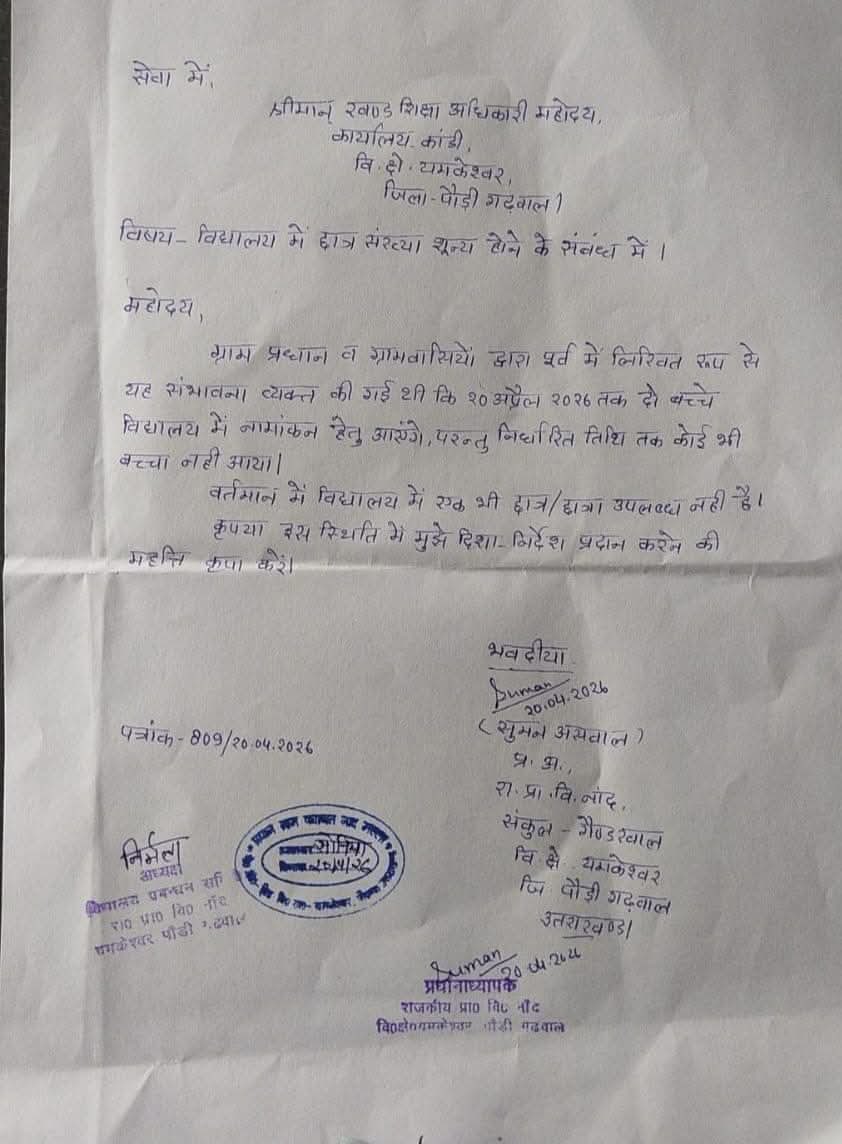 सेवा में,
श्रीमान् खण्ड शिक्षा अधिकारी महोदय,
कार्यालय कांडी,
वि. क्षे. यमकेश्वर,
जिला - पौड़ी गढ़वाल।
विषय - विद्यालय में छात्र संख्या शून्य होने के संबंध में ।
महोदय,
ग्राम प्रधान व ग्रामवासियों द्वारा पूर्व में लिखित रूप से
यह संभावना व्यक्त की गई थी कि 20 अप्रैल 2026 तक दो बच्चे
विद्यालय में नामांकन हेतु आएंगे, परन्तु निर्धारित तिथि तक कोई भी
बच्चा नही आया।
वर्तमान में विद्यालय में एक भी छात्र/छात्रा उपलब्ध नही है।
कृपया इस स्थिति में मुझे दिशा-निर्देश प्रदान करने की
महत्ति कृपा करें।
भवदीया
Suman
20.04.2026
(सुमन असवाल)
प्र. अ.,
रा. प्रा. वि. नांद,
संकुल - गैण्डखाल
वि. क्षे. यमकेश्वर
जि. पौड़ी गढ़वाल
उत्तराखण्ड।
पत्रांक - 809/20.04.2026
निर्मला
अध्यक्ष
विद्यालय प्रबन्धन
रा० प्रा० वि० नाँद
यमकेश्वर पौडी गढवाल
सोनिया
20/4/26
Suman
20.04.2026
प्रधानाध्यापक
राजकीय प्रा० वि० नाँद
वि०क्षे०यमकेश्वर पौडी गढवाल